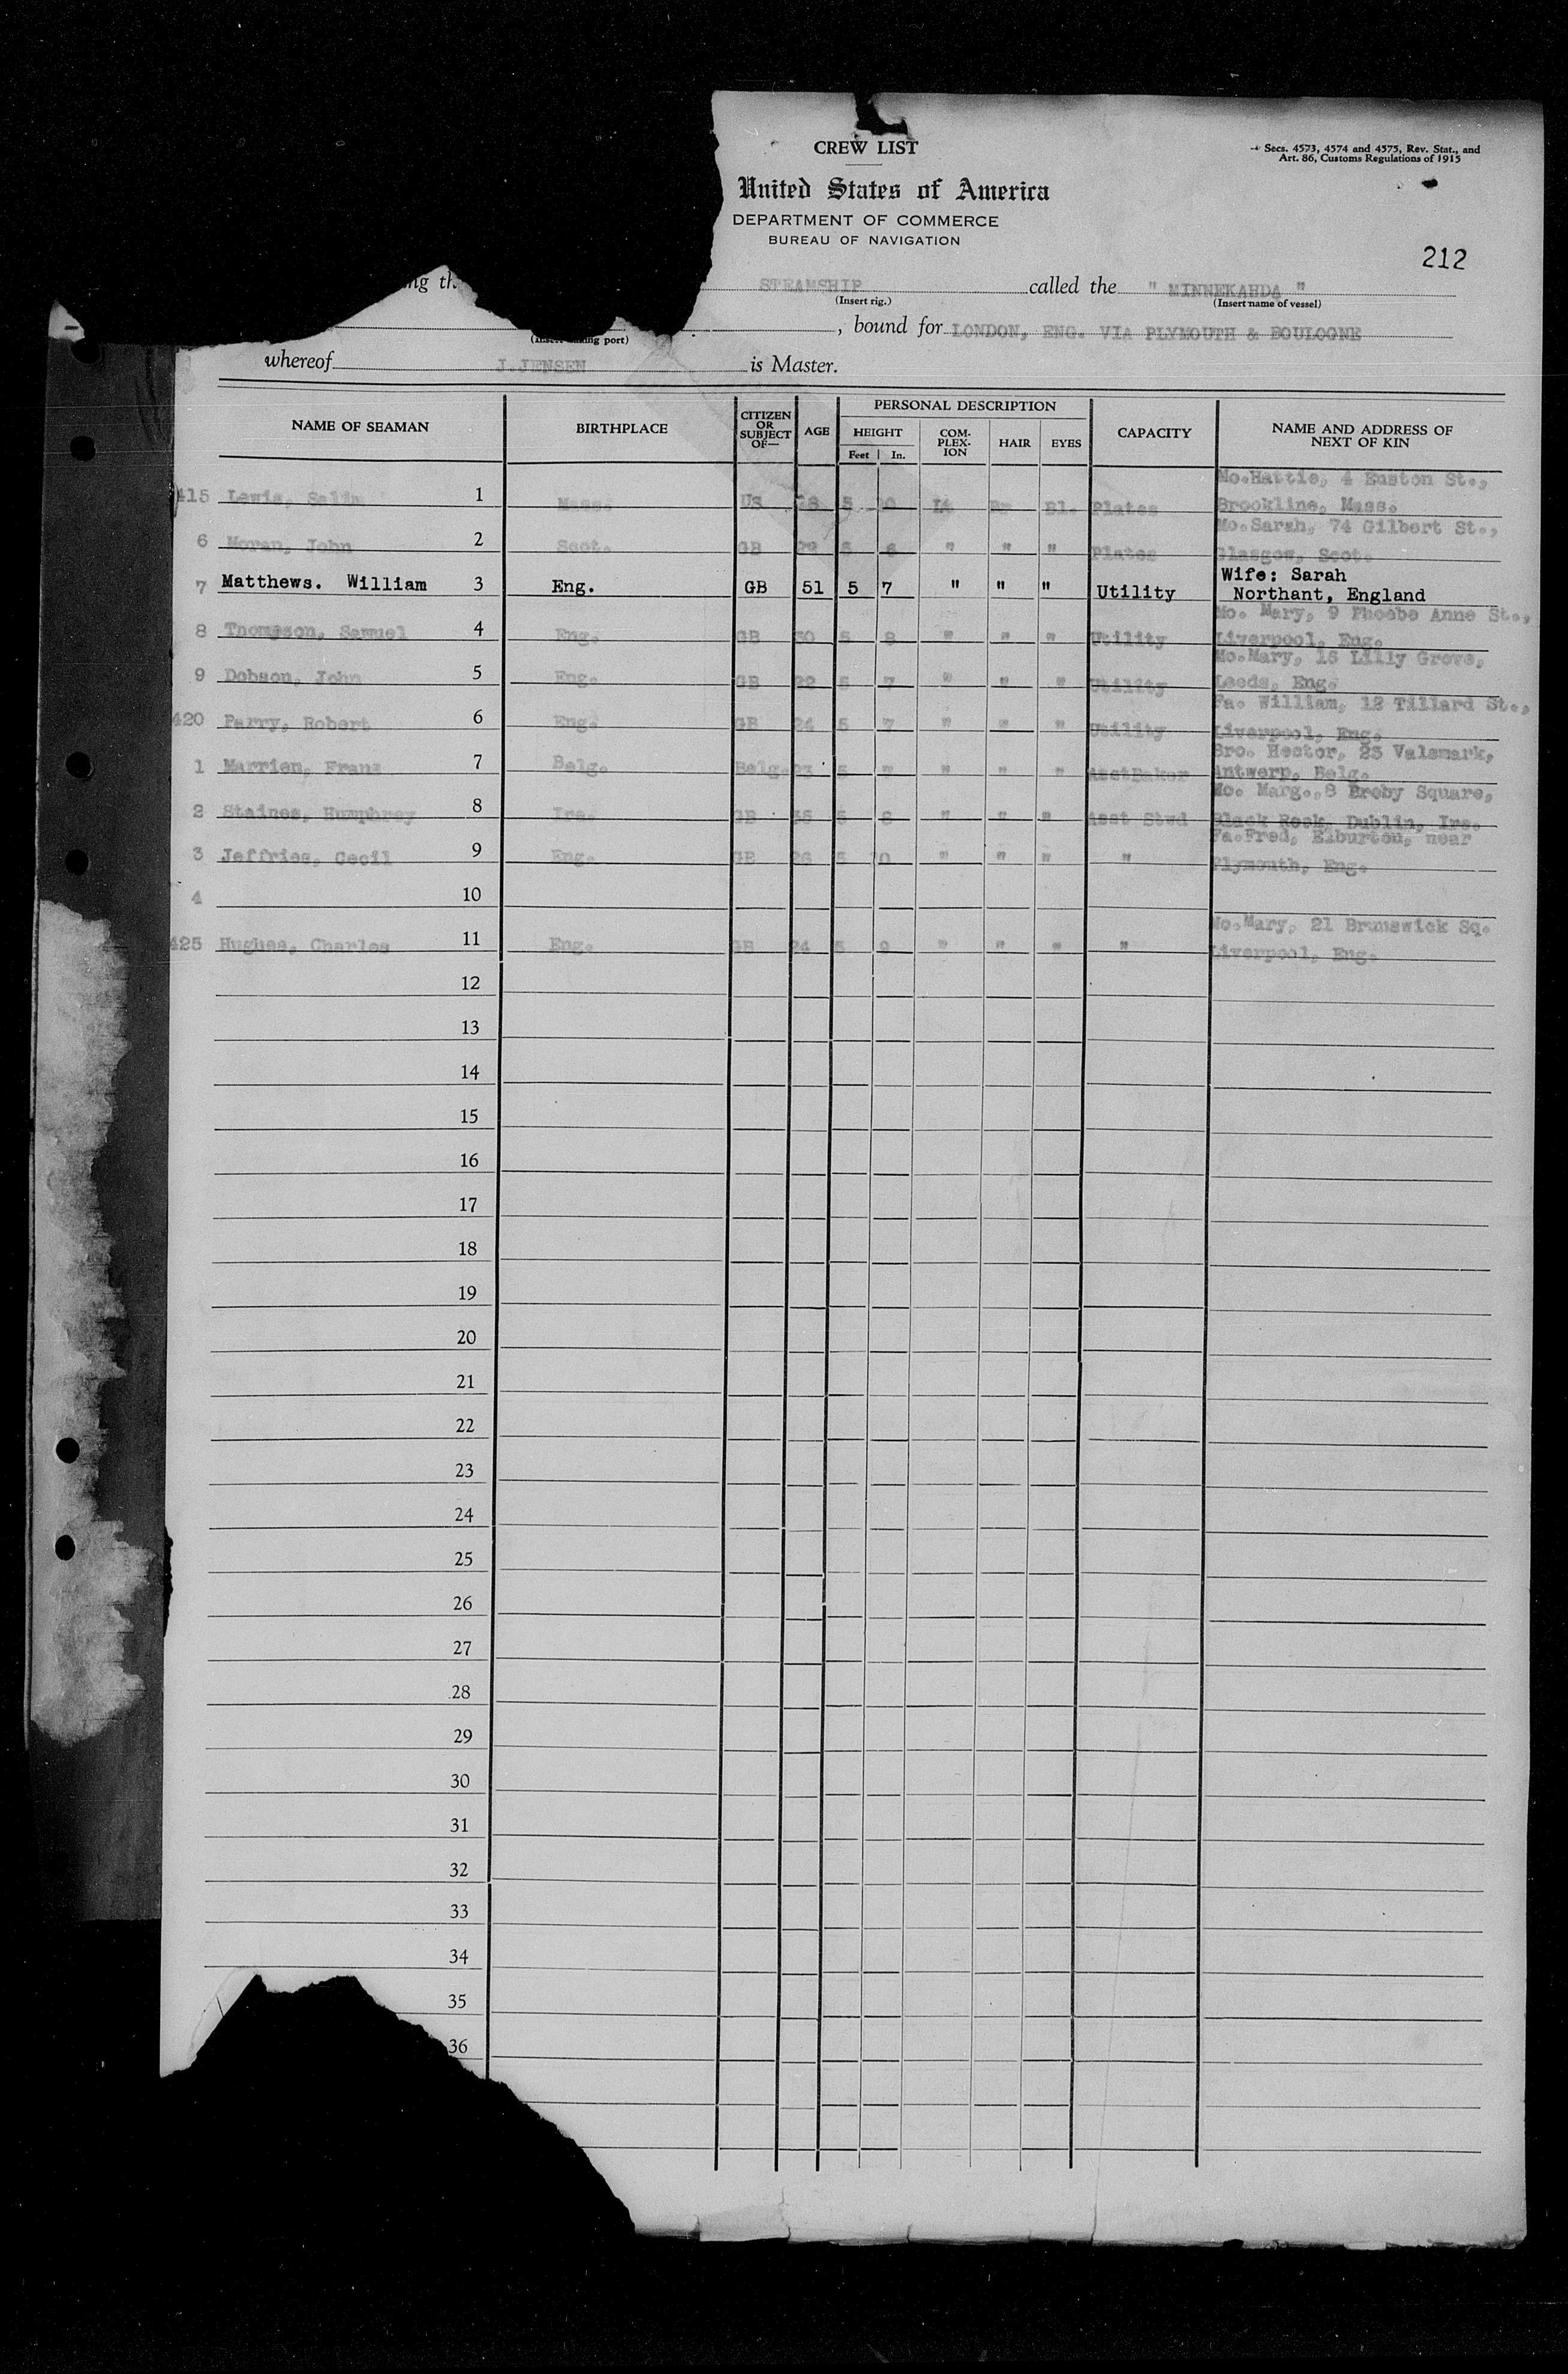 CREW LIST
Secs. 4573, 4574 and 4575, Rev. Stat., and
Art. 86, Customs Regulations of 1915
United States of America
DEPARTMENT OF COMMERCE
BUREAU OF NAVIGATION
212
STEAMSHIP called the " MINNEKAHDA "
(Insert rig.) (Insert name of vessel)
, bound for LONDON, ENG. VIA PLYMOUTH & BOULOGNE
port)
whereof J.JENSEN is Master.
NAME OF SEAMAN BIRTHPLACE CITIZEN OR SUBJECT OF— AGE PERSONAL DESCRIPTION CAPACITY NAME AND ADDRESS OF NEXT OF KIN
HEIGHT COM-PLEX-ION HAIR EYES
Feet In.
Mo.Hattie, 4 Euston St.,
415 Lewis, Salim 1 Mass. US 28 5 Lt Br Bl. Plates Brookline, Mass.
Mo.Sarah, 74 Gilbert St.,
6 Moran, John 2 Scot. GB 29 5 6 " " " Plates Glasgow, Scot.
7 Matthews. William 3 Eng. GB 51 5 7 " " " Utility Wife: Sarah
Northant, England
Mo. Mary, 9 Phoebe Anne St.,
8 Thompson, Samuel 4 Eng. GB 30 5 8 " " " Utility Liverpool, Eng.
Mo.Mary, 16 Lilly Grove,
9 Dobson, John 5 Eng. GB 22 5 7 " " " Utility Leeds, Eng.
Fa. William, 12 Tillard St.,
420 Parry, Robert 6 Eng. GB 24 5 7 " " " Utility Liverpool, Eng.
Bro. Hector, 23 Valsmark,
1 Marrien, Frans 7 Belg. Belg. 23 5 7 " " " AsstBaker Antwerp, Belg.
Mo. Marg.,8 Broby Square,
2 Staines, Humphrey 8 Ire. GB 35 5 8 " " " Asst Stwd Black Rock, Dublin, Ire.
Fa.Fred, Elburton, near
3 Jeffries, Cecil 9 Eng. GB 26 5 " " " " Plymouth, Eng.
4 10
Mo.Mary, 21 Brunswick Sq.
425 Hughes, Charles 11 Eng. GB 24 5 9 " " " " Liverpool, Eng.
12
13
14
15
16
17
18
19
20
21
22
23
24
25
26
27
28
29
30
31
32
33
34
35
36